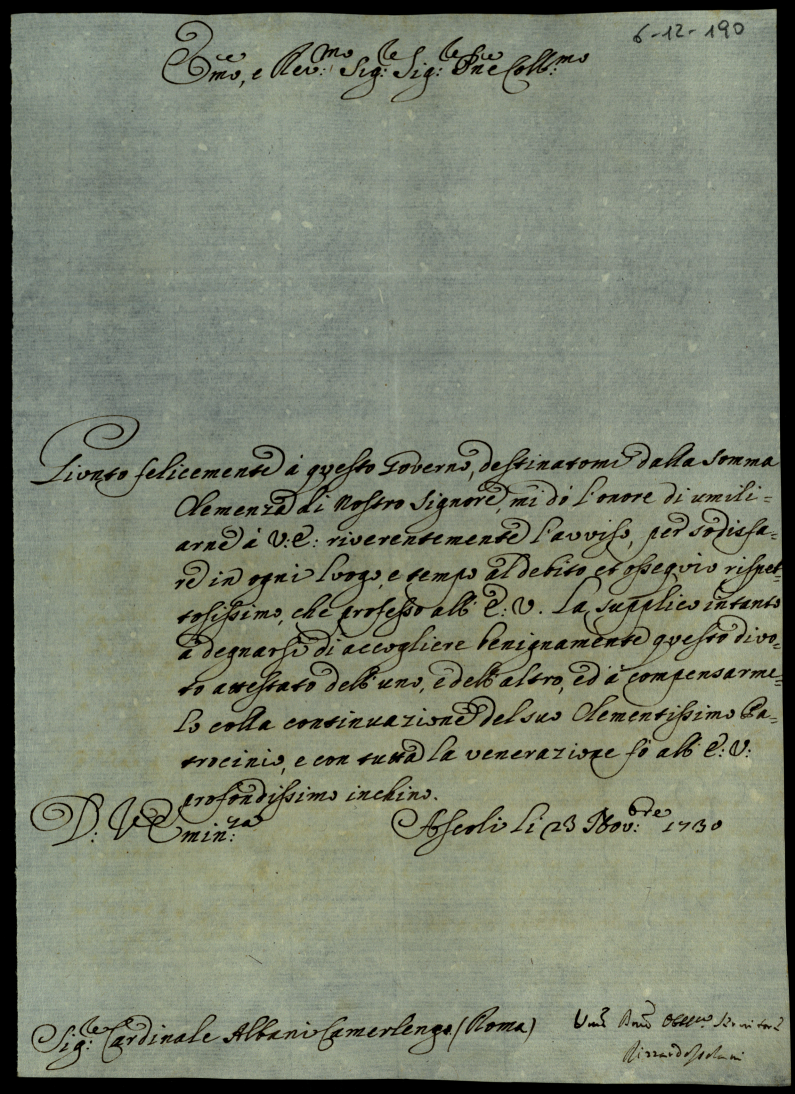 6-12-190
Emo, e Rev:mo Sig:re Sig:re Pne Coll:mo
Giunto felicemente à questo Governo, destinatomi dalla somma
Clemenza di Nostro Signore, mi dò l'onore di umili=
arne à V: E: riverentemente l'avviso, per sodisfa=
re in ogni luogo, e tempo al debito, et ossequio rispet=
tosissimo, che professo all' E: V. La supplico intanto
à degnarsi di accogliere benignamente questo divo=
to attestato dell'uno, e dell'altro, ed à compensarme=
lo colla continuazione del suo Clementissimo Pa=
trocinio, e con tutta la venerazione fò all' E: V:
profondissimo inchino.
D: V: Emin:za Ascoli li 23 Nov:bre 1730
Sig:re Cardinale Albani Camerlengo (Roma)
Umo Dmo Obbmo Servitore